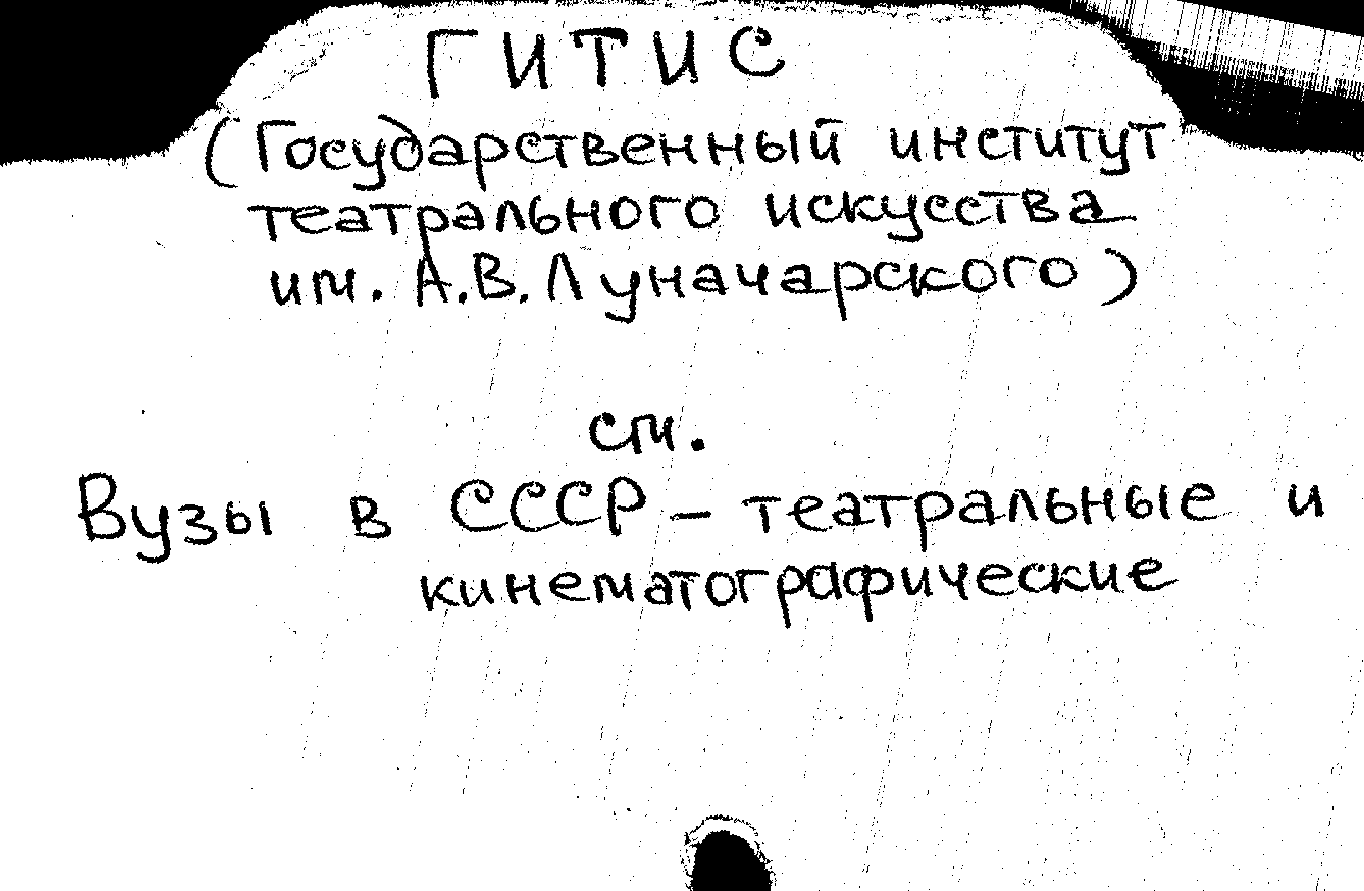 ГИТИС
(Государственный институт
театрального искусства
им. А.В. Луначарского)
см.
Вузы в СССР – театральные и
кинематографические